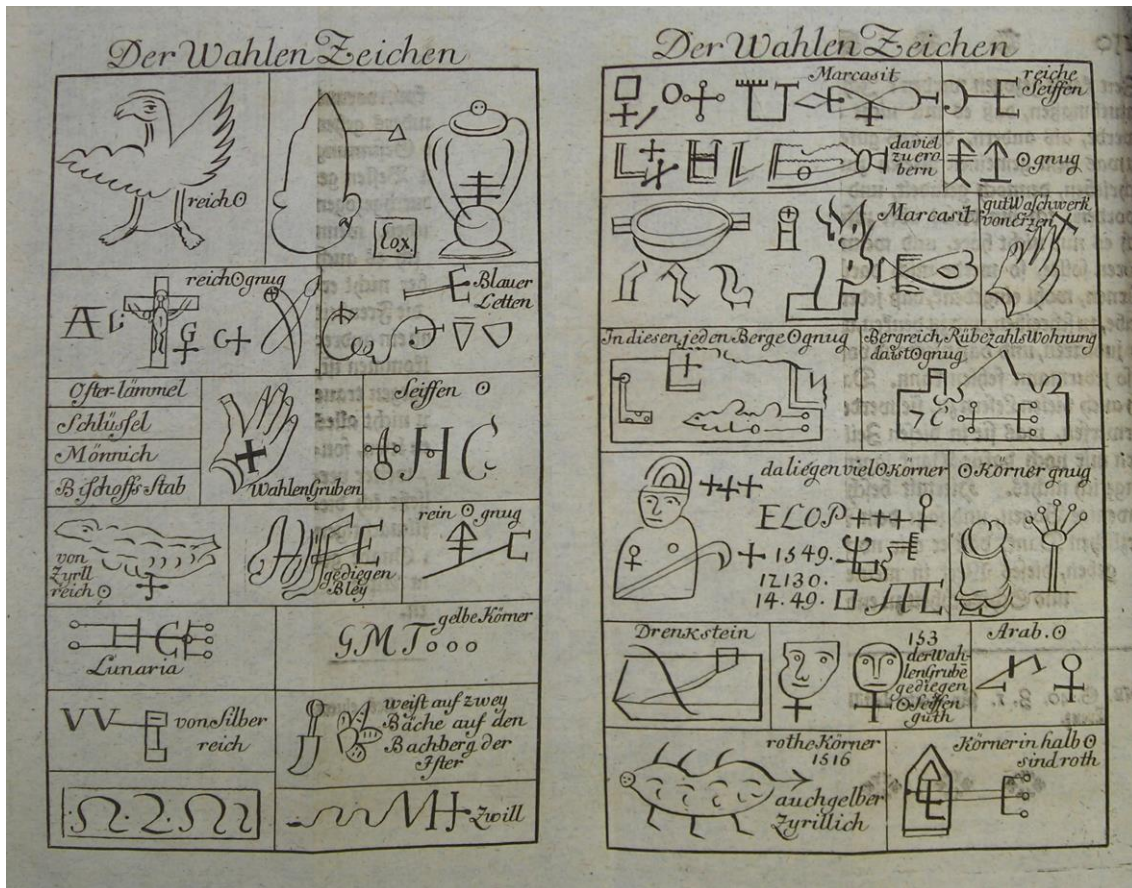 Der Wahlen Zeichen
reich☉
Lox.
reich☉gnug
Blauer
Letten
A
G
G
Oster-lämmel
Schlüssel
Mönnich
Bischoffs Stab
Seiffen ☉
H C
Wahlen Gruben
von
Zyrll
reich☉
gediegen
Bley
rein ☉ gnug
Lunaria
gelbe Körner
G M T o o o
VV
von Silber
reich
weist auf zwey
Bäche auf den
Bachberg der
Ister
Zwill
Der Wahlen Zeichen
Marcasit
reiche
Seiffen
da viel
zu ero
bern
☉ gnug
Marcasit
gut Waschwerk
von erzen
In diesen jeden Berge ☉gnug
Bergreich, Rübezahls Wohnung
da ist ☉gnug
da liegen viel ☉Körner
ELOP++++
+ 1549.
12130.
14.49.
☉Körner gnug
Drenkstein
153
der Wah-
len Grube
gediegen
☉Seiffen
guth
Arab. ☉
rothe Körner
1516
auch gelber
Zyrillich
Körner in halb ☉
sind roth